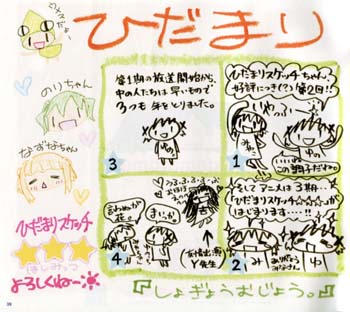 ひだまり
のりちゃん
なずなちゃん
ひだまりスケッチ
ほしみっつ
よろしくねー
ひだまりスケッチちゃん、
好評につき(?)第2回!!
いやっふー
いいね
この調子だわ。
1
そしてアニメは3期…
ひだまりスケッチ☆☆☆が
はじまりまます……!!
み
ゆ
ありがとう
みなさん
2
第1期の放送開始から、
中の人たちは早いもので
3つも年をとりました。
3
言わぬが
花。
まいっか
友情出演
Y先生
4
『しょぎょうむじょう。』